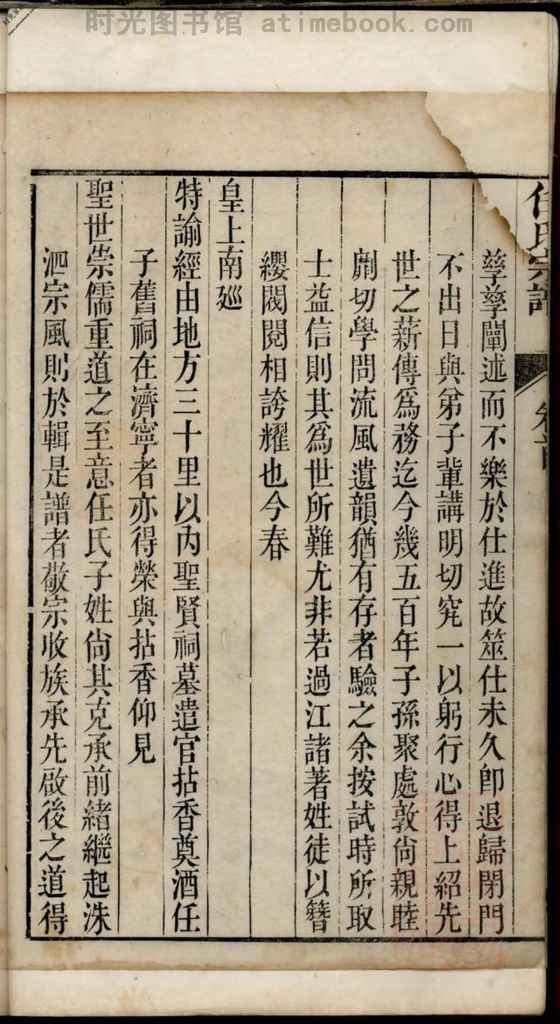 时光图书馆 atimebook.com
任氏宗譜 卷首
孳孳闡述而不樂於仕進故筮仕未久卽退歸閉門
不出日與弟子輩講明切究一以躬行心得上紹先
世之薪傳爲務迄今幾五百年子孫聚處敦尙親睦
劘切學問流風遺韻猶有存者驗之余按試時所取
士益信則其爲世所難尤非若過江諸著姓徒以簪
纓閥閱相誇耀也今春
皇上南廵
特諭經由地方三十里以內聖賢祠墓遣官拈香奠酒任
子舊祠在濟寧者亦得榮與拈香仰見
聖世崇儒重道之至意任氏子姓尙其克承前緒繼起洙
泗宗風則於輯是譜者敬宗收族承先啟後之道得